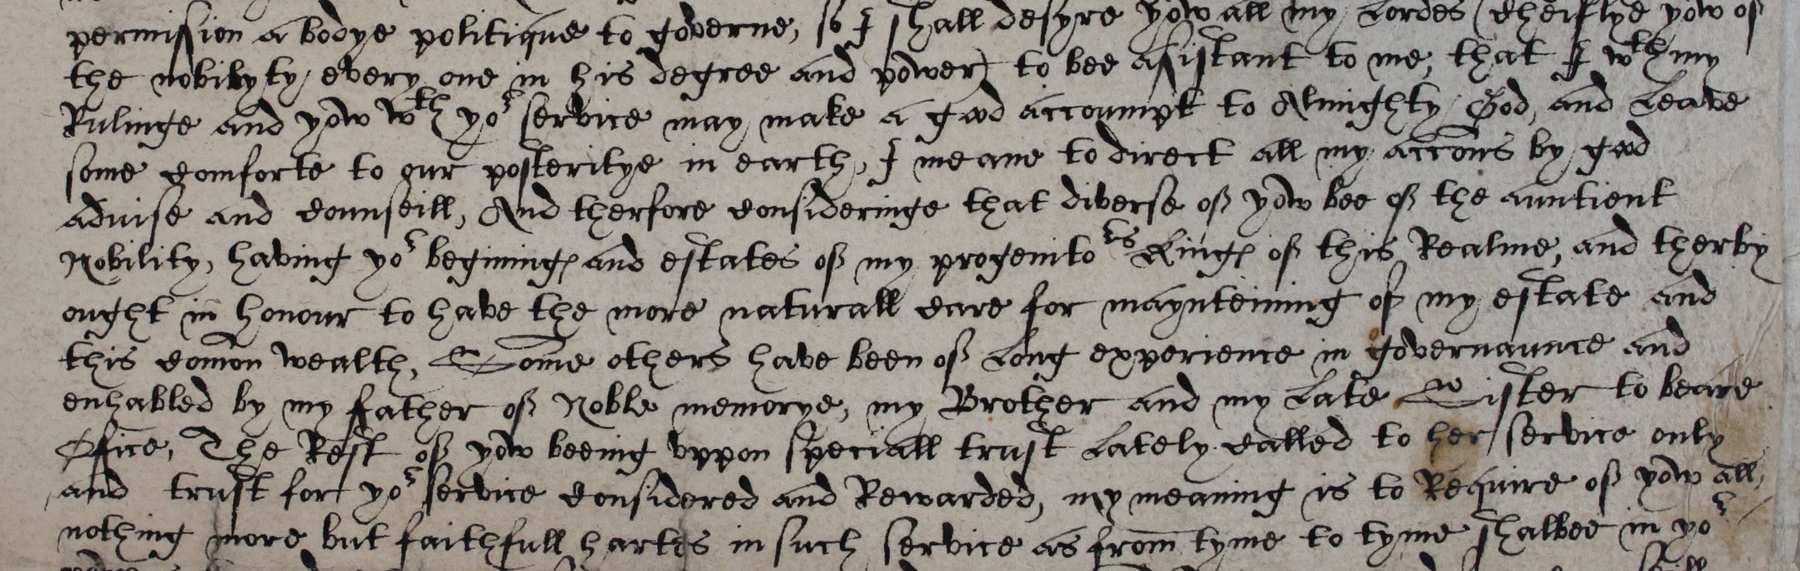 permission a bodye politique to governe, so I shall desyre yow all my Lordes (cheiflye yow of
the nobilyty, every one in his degree and power) to bee asistant to me, that I wth my
Rulinge and yow wth yor service may make a good accoumpt to Almighty God, and Leave
some comforte to our posteritye in earth, I meane to direct all my accons by good
aduise and counseill, And therfore consideringe that diverse of yow bee of the auntient
Nobility, having yor beginings and estates of my progenitors kings of this Realme, and therby
ought in honour to have the more naturall care for maynteining of my estate and
this comon wealth, Some others have been of Long experience in governaunce and
enhabled by my father of Noble memorye, my Brother and my Late Sister to beare
Office, The Rest of yow beeing vppon speciall trust Lately called to her service only
and trust for yor service considered and Rewarded, my meaning is to Require of yow all
nothing more but faithfull hartes in such service as from tyme to tyme shalbee in yor